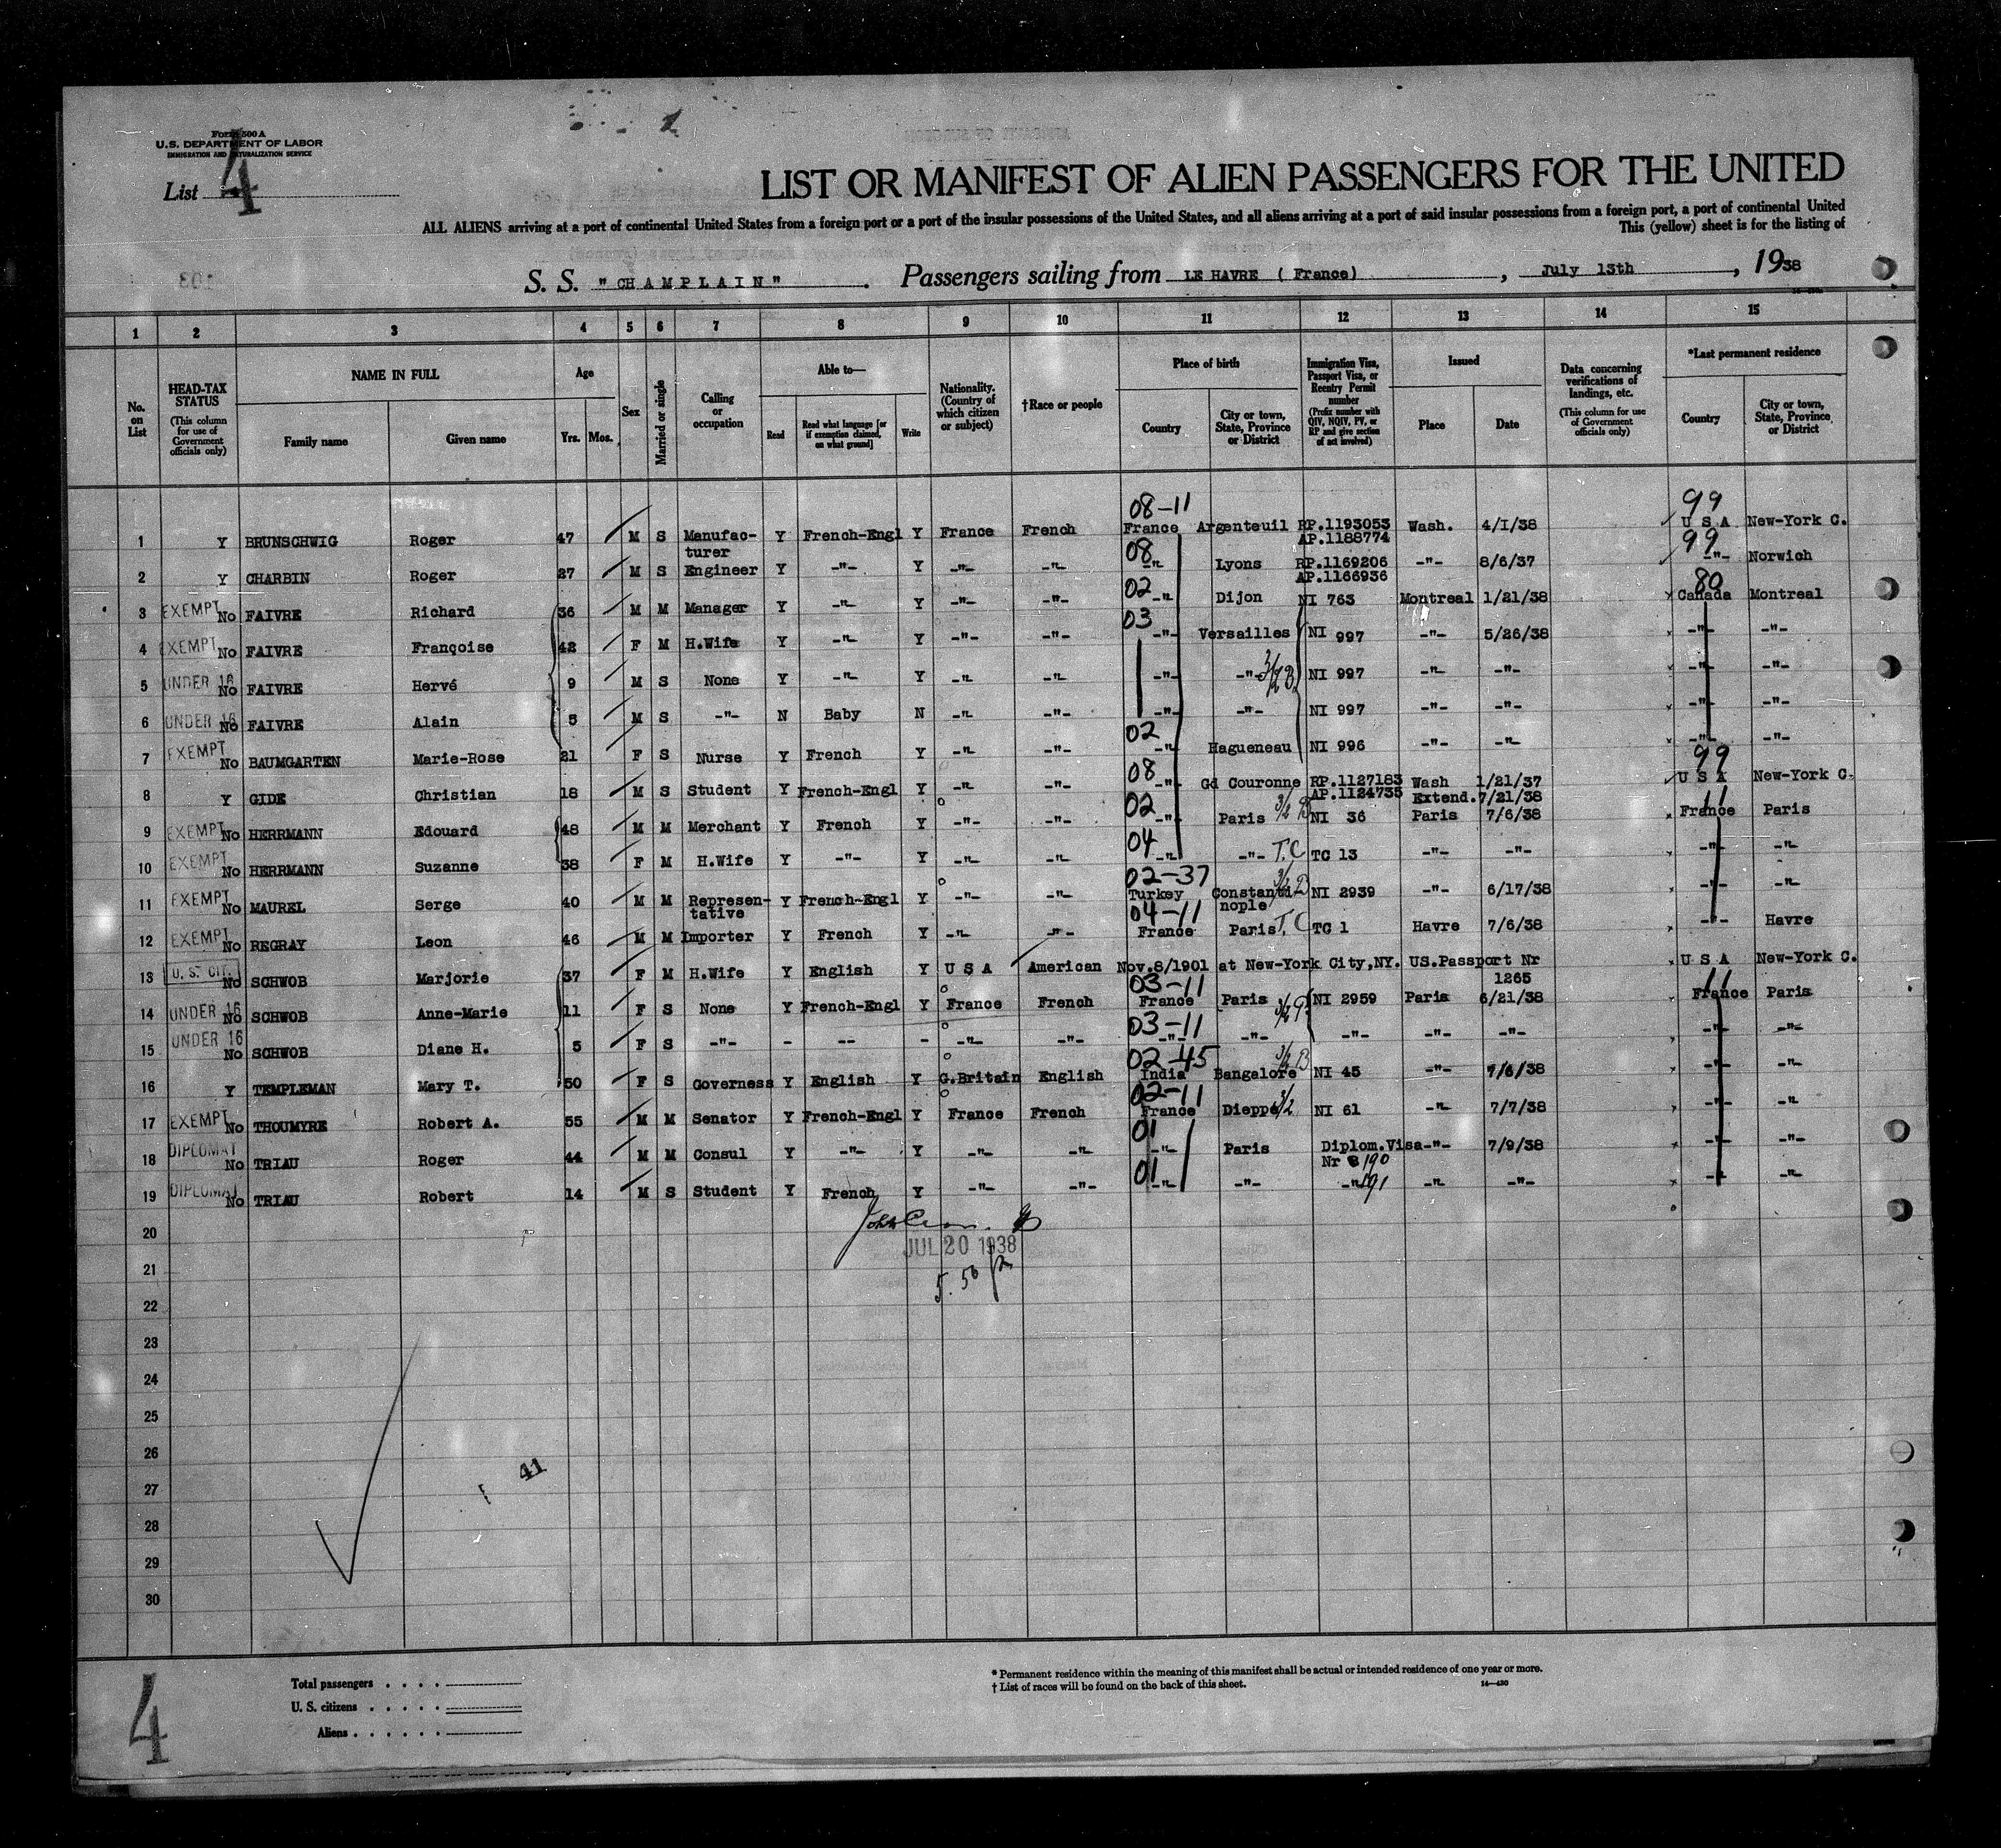 Form 500 A
U.S. DEPARTMENT OF LABOR
IMMIGRATION AND NATURALIZATION SERVICE
List 4
LIST OR MANIFEST OF ALIEN PASSENGERS FOR THE UNITED
ALL ALIENS arriving at a port of continental United States from a foreign port or a port of the insular possessions of the United States, and all aliens arriving at a port of said insular possessions from a foreign port, a port of continental United
This (yellow) sheet is for the listing of
S. S. "CHAMPLAIN" . Passengers sailing from LE HAVRE ( France) , July 13th , 1938
1 2 3 4 5 6 7 8 9 10 11 12 13 14 15
No. on List
HEAD-TAX STATUS (This column for use of Government officials only)
NAME IN FULL Family name Given name
Age Yrs. Mos.
Sex
Married or single
Calling or occupation
Able to— Read Read what language [or if exemption claimed, on what ground] Write
Nationality. (Country of which citizen or subject)
†Race or people
Place of birth Country City or town, State, Province or District
Immigration Visa, Passport Visa, or Reentry Permit number (Prefix number with QIV, NQIV, PV, or RP and give section of act involved)
Issued Place Date
Data concerning verifications of landings, etc. (This column for use of Government officials only)
*Last permanent residence Country City or town, State, Province or District
08-11 99
1 Y BRUNSCHWIG Roger 47 M S Manufac-turer Y French-Engl Y France French France Argenteuil RP.1193053 AP.1188774 Wash. 4/I/38 U S A New-York C.
08 99
2 Y CHARBIN Roger 27 M S Engineer Y -"- Y -"- -"- -"- Lyons RP.1169206 AP.1166936 -"- 8/6/37 -"- Norwich
02 80
3 EXEMPT No FAIVRE Richard 36 M M Manager Y -"- Y -"- -"- -"- Dijon NI 763 Montreal 1/21/38 Canada Montreal
03
4 EXEMPT No FAIVRE Françoise 42 F M H.Wife Y -"- Y -"- -"- -"- Versailles NI 997 -"- 5/26/38 -"- -"-
5 UNDER 16 No FAIVRE Hervé 9 M S None Y -"- Y -"- -"- -"- -"- 3/2 B NI 997 -"- -"- -"- -"-
6 UNDER 16 No FAIVRE Alain 5 M S -"- N Baby N -"- -"- -"- -"- NI 997 -"- -"- -"- -"-
02
7 EXEMPT No BAUMGARTEN Marie-Rose 21 F S Nurse Y French Y -"- -"- -"- Hagueneau NI 996 -"- -"- -"- -"-
08 99
8 Y GIDE Christian 18 M S Student Y French-Engl Y -"- -"- -"- Gd Couronne RP.1127183 AP.1124735 Wash 1/21/37 Extend.7/21/38 U S A New-York C.
02 11
9 EXEMPT No HERRMANN Edouard 48 M M Merchant Y French Y -"- -"- -"- Paris 3/2 B NI 36 Paris 7/6/38 France Paris
04
10 EXEMPT No HERRMANN Suzanne 38 F M H.Wife Y -"- Y -"- -"- -"- -"- T.C TC 13 -"- -"- -"- -"-
02-37
11 EXEMPT No MAUREL Serge 40 M M Represen-tative Y French-Engl Y -"- -"- Turkey Constanti-nople 3/2 B NI 2939 -"- 6/17/38 -"- -"-
04-11
12 EXEMPT No REGRAY Leon 46 M M Importer Y French Y -"- -"- France Paris T.C TC 1 Havre 7/6/38 -"- Havre
13 U. S. CIT. No SCHWOB Marjorie 37 F M H.Wife Y English Y U S A American Nov.8/1901 at New-York City,NY. US.Passport Nr 1265 U S A New-York C.
03-11 11
14 UNDER 16 No SCHWOB Anne-Marie 11 F S None Y French-Engl Y France French France Paris NI 2959 Paris 6/21/38 France Paris
03-11
15 UNDER 16 No SCHWOB Diane H. 5 F S -"- - -- - -"- -"- -"- -"- -"- -"- -"- -"- -"-
02-45
16 Y TEMPLEMAN Mary T. 50 F S Governess Y English Y G.Britain English India Bangalore 3/2 B NI 45 -"- 7/6/38 -"- -"-
02-11
17 EXEMPT No THOUMYRE Robert A. 55 M M Senator Y French-Engl Y France French France Dieppe 3/2 NI 61 -"- 7/7/38 -"- -"-
01
18 DIPLOMAT No TRIAU Roger 44 M M Consul Y -"- Y -"- -"- -"- Paris Diplom.Visa Nr 190 -"- 7/9/38 -"- -"-
01
19 DIPLOMAT No TRIAU Robert 14 M S Student Y French Y -"- -"- -"- -"- -"- 191 -"- -"- -"- -"-
20
JUL 20 1938
21
5.50
22
23
24
25
26
27
41
28
29
30
4
Total passengers . . . .
U. S. citizens . . . . .
Aliens . . . . . .
* Permanent residence within the meaning of this manifest shall be actual or intended residence of one year or more.
† List of races will be found on the back of this sheet.
14—430